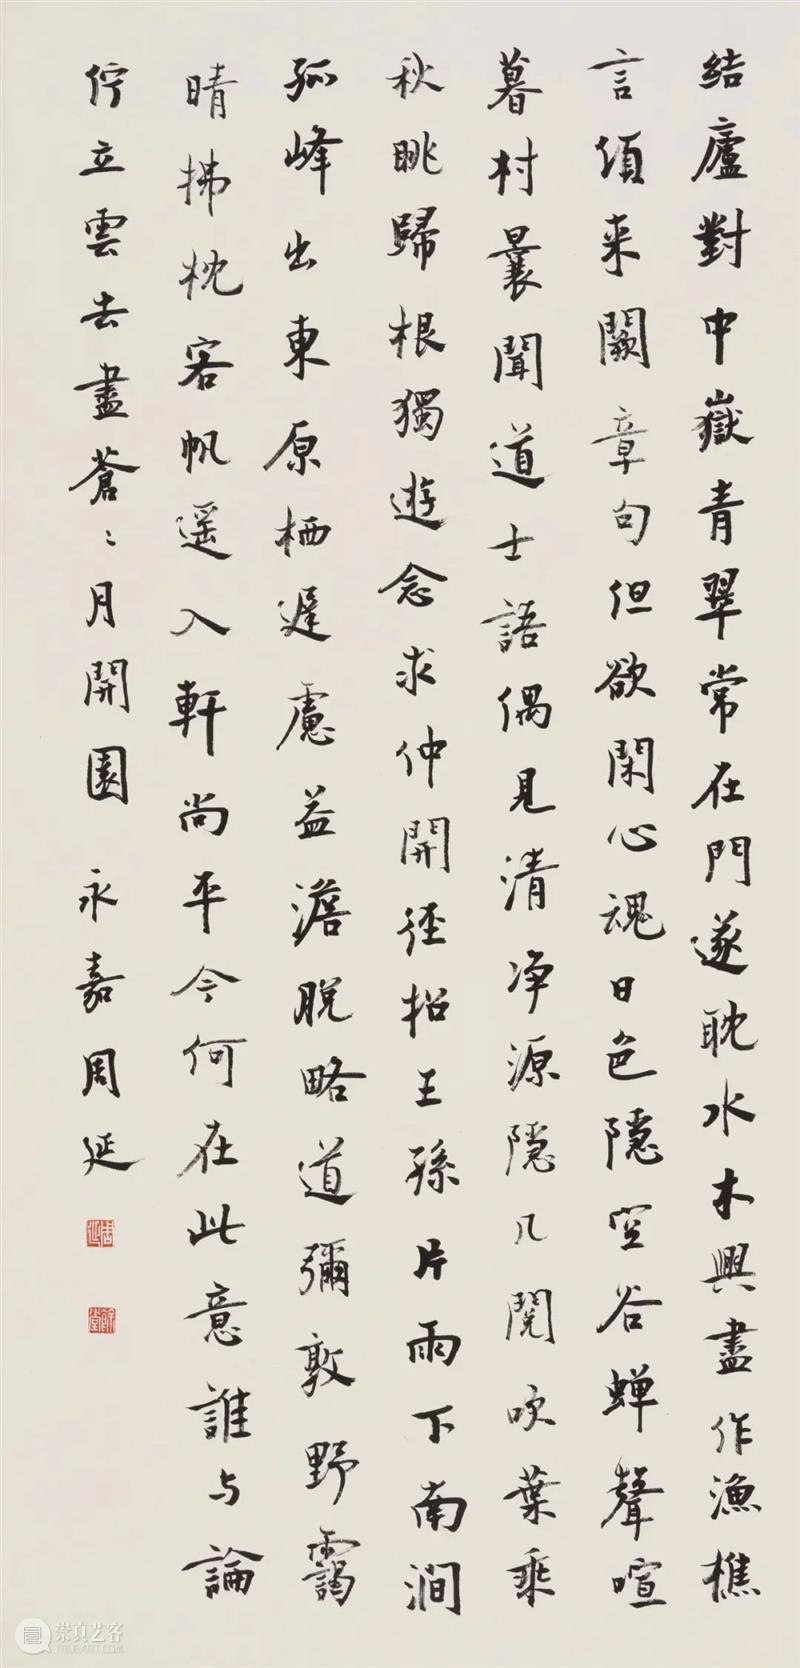 結廬對中嶽青翠常在門遂耽水木興盡作漁樵
言頃来闕章句但欲閑心魂日色隱空谷蟬聲喧
暮村曩聞道士語偶見清净源隱几閱吹葉乘
秋眺歸根獨遊念求仲開徑招王孫片雨下南澗
孤峰出東原栖遲慮益澹脱略道彌敦野靄
晴拂枕客帆遥入軒尚平今何在此意誰与論
佇立雲去盡蒼〻月開園 永嘉周延
周延
崇真艺客